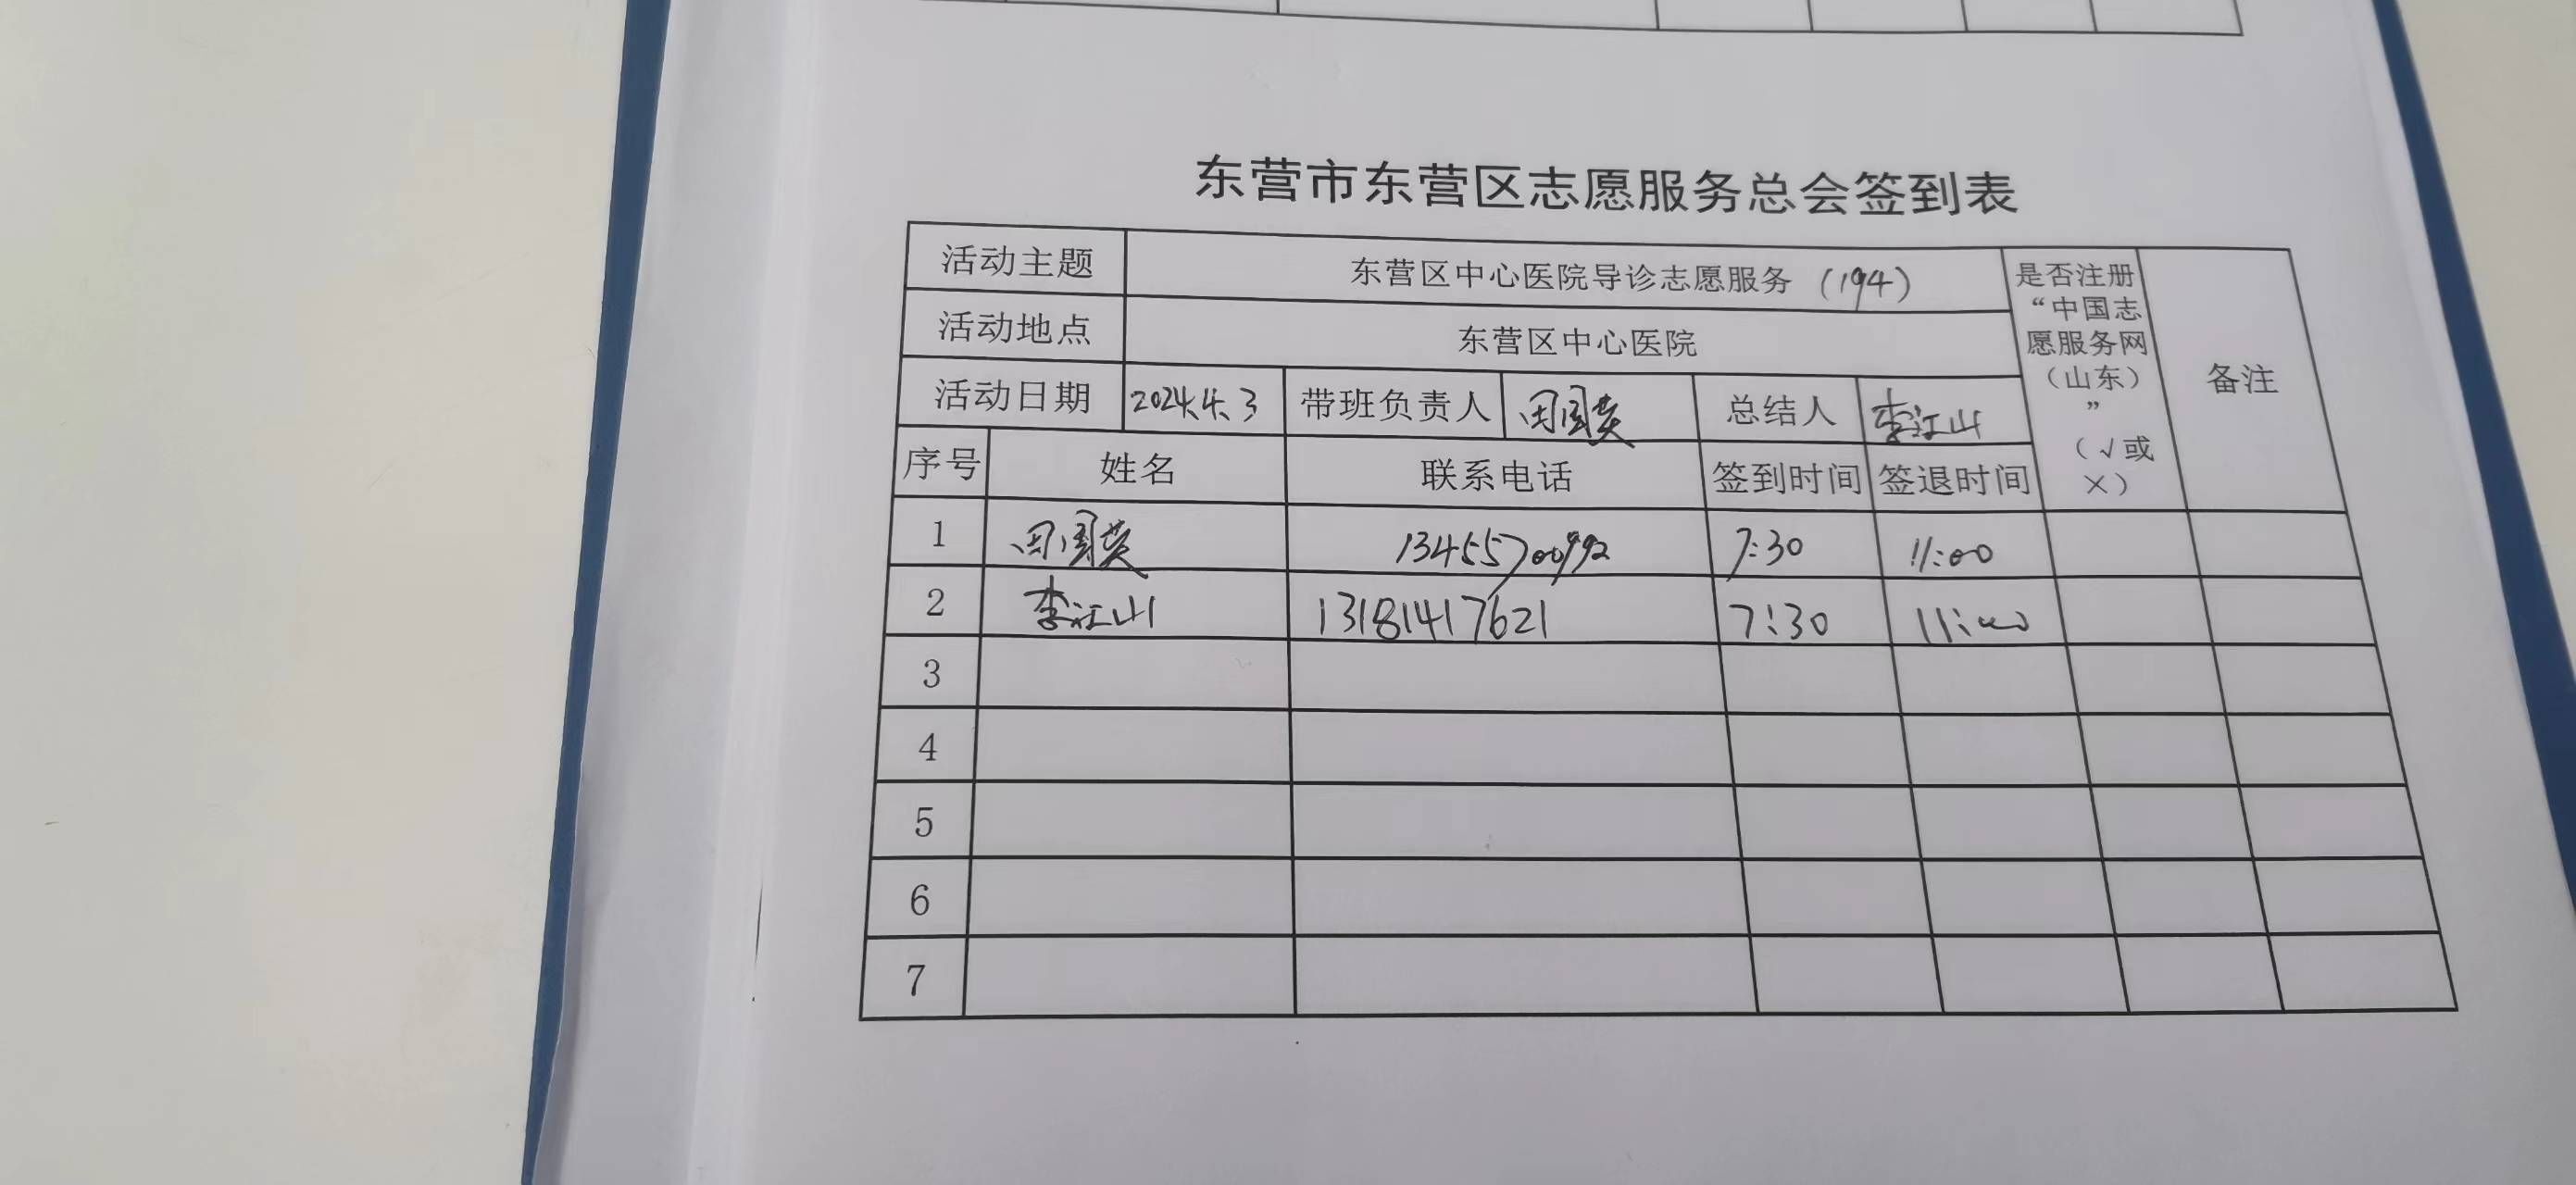 东营市东营区志愿服务总会签到表
活动主题 东营区中心医院导诊志愿服务 (194) 是否注册“中国志愿服务网（山东）”（√或×） 备注
活动地点 东营区中心医院
活动日期 2024.4.3 带班负责人 总结人 李江山
序号 姓名 联系电话 签到时间 签退时间
1 13455700992 7:30 11:00
2 李江山 13181417621 7:30 11:00
3
4
5
6
7